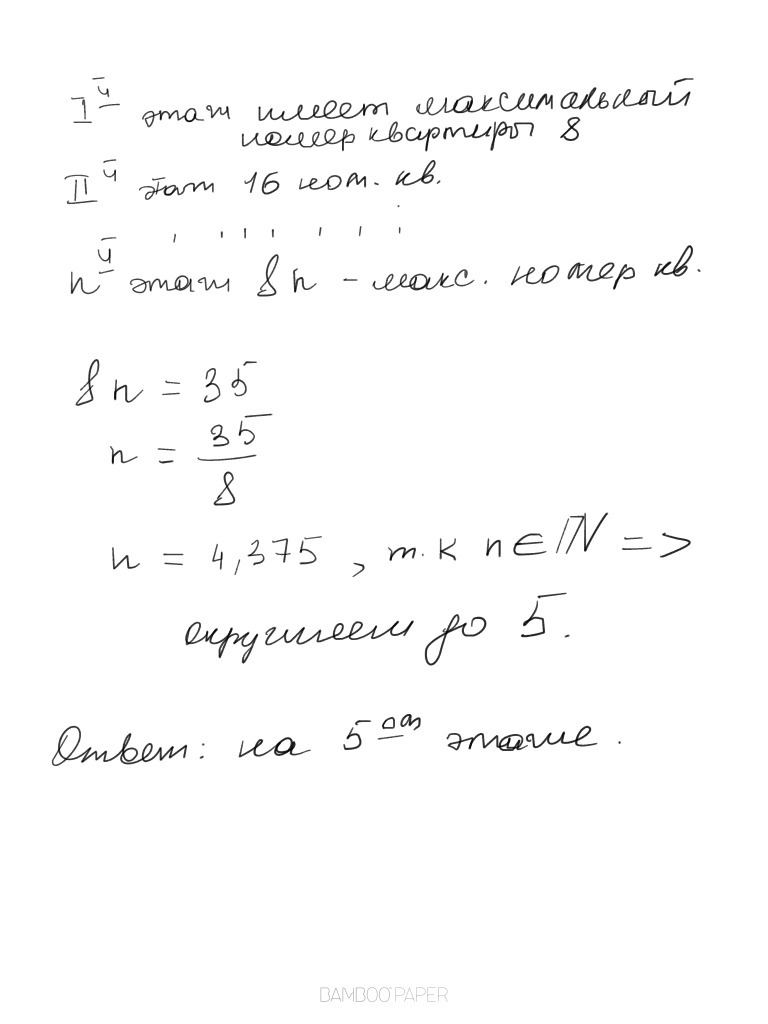 I й этаж имеет максимальный
номер квартиры 8
II й этаж 16 ном. кв.
n й этаж 8n - макс. номер кв.
8n = 35
n = 35/8
n = 4,375, т.к n ∈ ℕ =>
округляем до 5.
Ответ: на 5 ом этаже.
BAMBOO PAPER